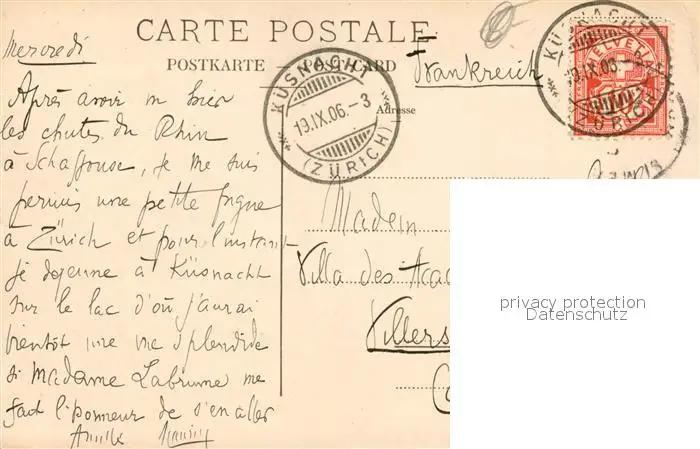 CARTE POSTALE
POSTKARTE — POST CARD
Adresse
Frankreich
Mercredi
Après avoir vu hier
les chutes du Rhin
à Schaffouse, je me suis
permis une petite fugue
à Zürich et pour l'instant
je déjeune à Küsnacht
sur le lac d'où j'aurai
bientôt une vue splendide
si Madame Labrume me
fait l'honneur de s'en aller
KÜSNACHT
19.IX.06.-3
(ZÜRICH)
KÜSNACHT
19.IX.06.-3
ZÜRICH
HELVETIA
10
Madem
Villa des Acac
Villers
privacy protection
Datenschutz